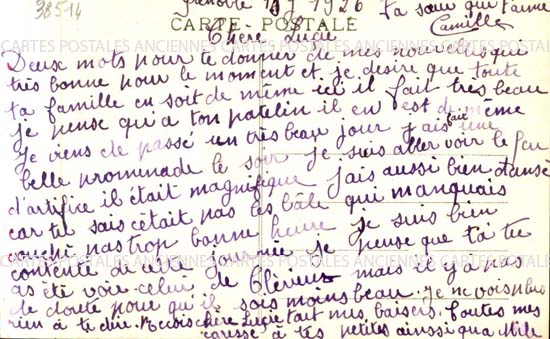 38514
Grenoble 1926 Ta sœur qui t'aime
CARTE POSTALE Camille
Chère Lucie
Deux mots pour te donner de mes nouvelles qui
très bonne pour le moment et je desire que toute
ta famille en soit de même ici il fait très beau
je pense qu'a ton patelin il en est de même
Je viens de passé un très beau jour fait une
belle promenade le soir je suis aller voir le feu
d'artifice il était magnifique jais aussi bien danse
car tu sais cétait pas les bâle qui manquais
pas trop bonne heure je suis bien
contente de cette journée je pense que ta tu
as été voir celui de mais il y a pas
de doute pour qu'il sois moins beau. Je ne vois plus
rien à te dire. Recois chère Lucie tout mes baisers. toutes mes
caresse à tes petites ainssi qua
CARTES POSTALES ANCIENNES